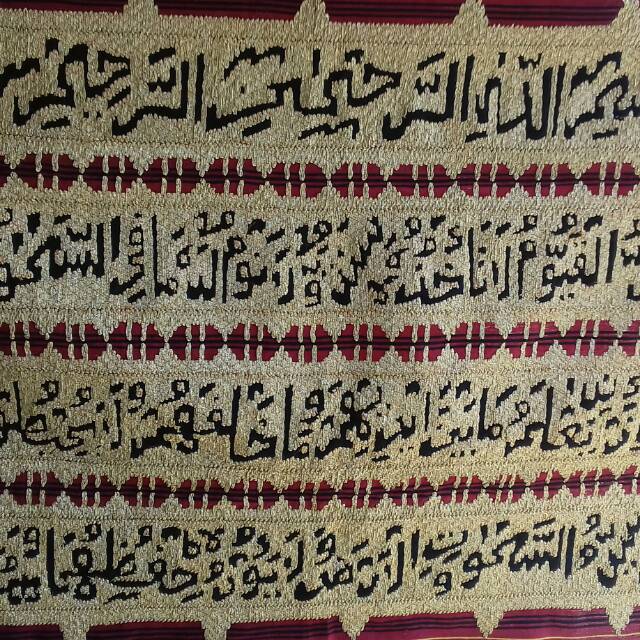 الله الرحمن الرحيم
القيوم لا تاخذه سنة ولا نوم له ما في السموا
يعلم ما بين ايديهم وما خلفهم ولا يحيطو
السموات والارض ولا يوده حفظهما